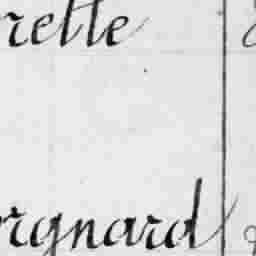 rette
rgnard